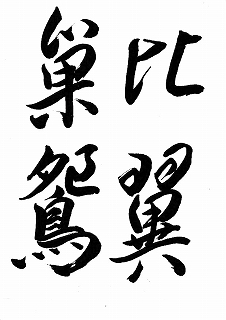 比翼
巣鴛